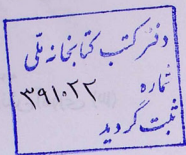 دفتر کتب کتابخانه ملی
شماره
۳۹۱۰۲۲
ثبت گردید